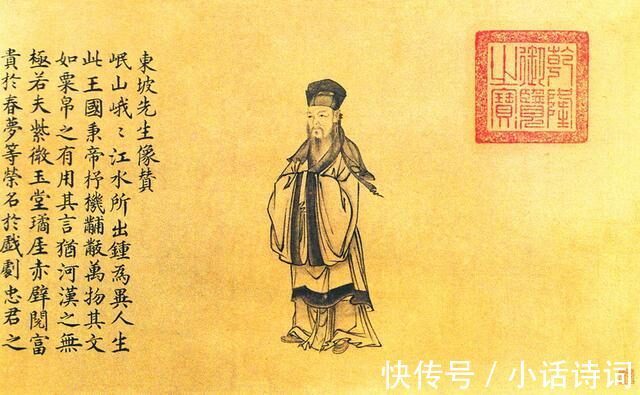 東坡先生像贊
岷山峩〻江水所出鍾為異人生
此王國秉帝杼機黼黻萬物其文
如粟帛之有用其言猶河漢之無
極若夫紫微玉堂璚厓赤壁閱富
貴於春夢等榮名於戲劇忠君之
乾隆
御覽
之寶
快传号 / 小话诗词